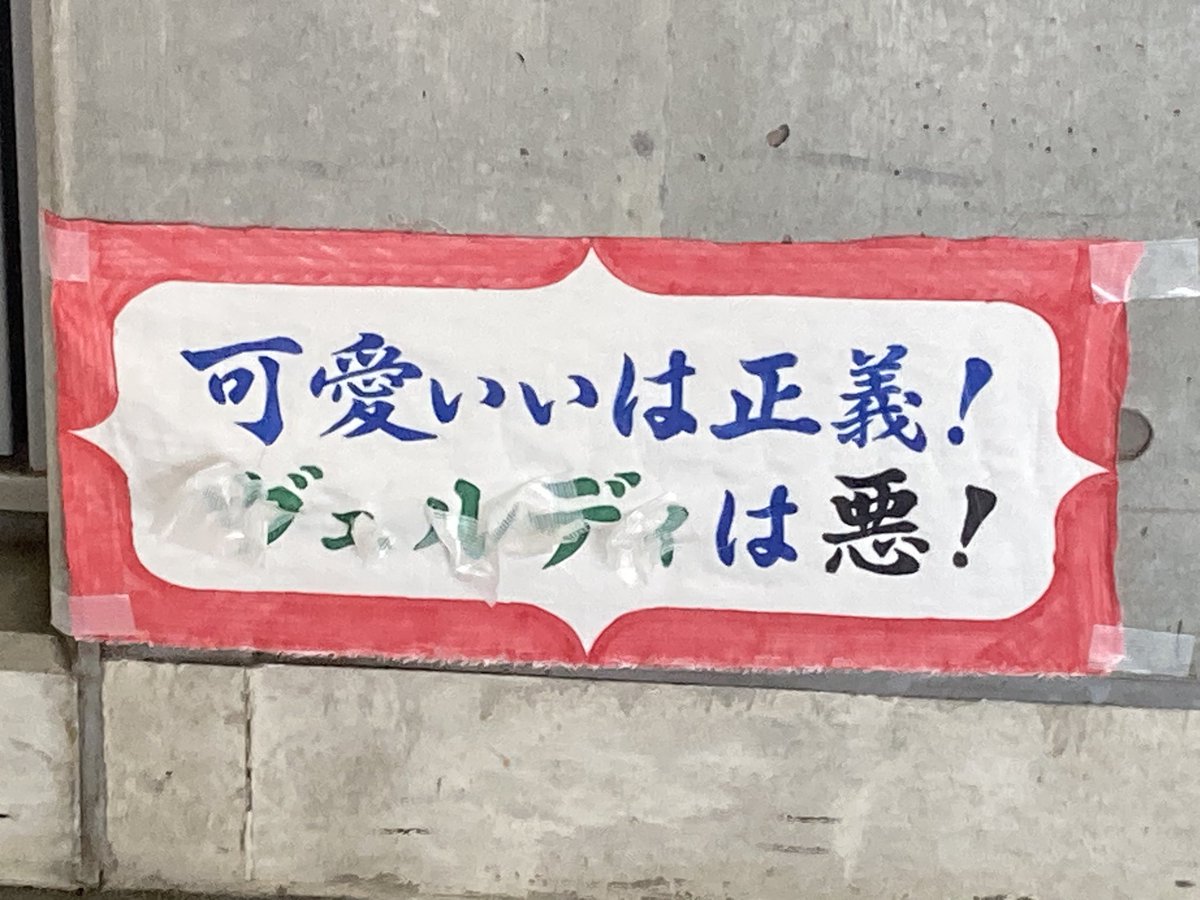 可愛いいは正義!
ヴェルディは悪!